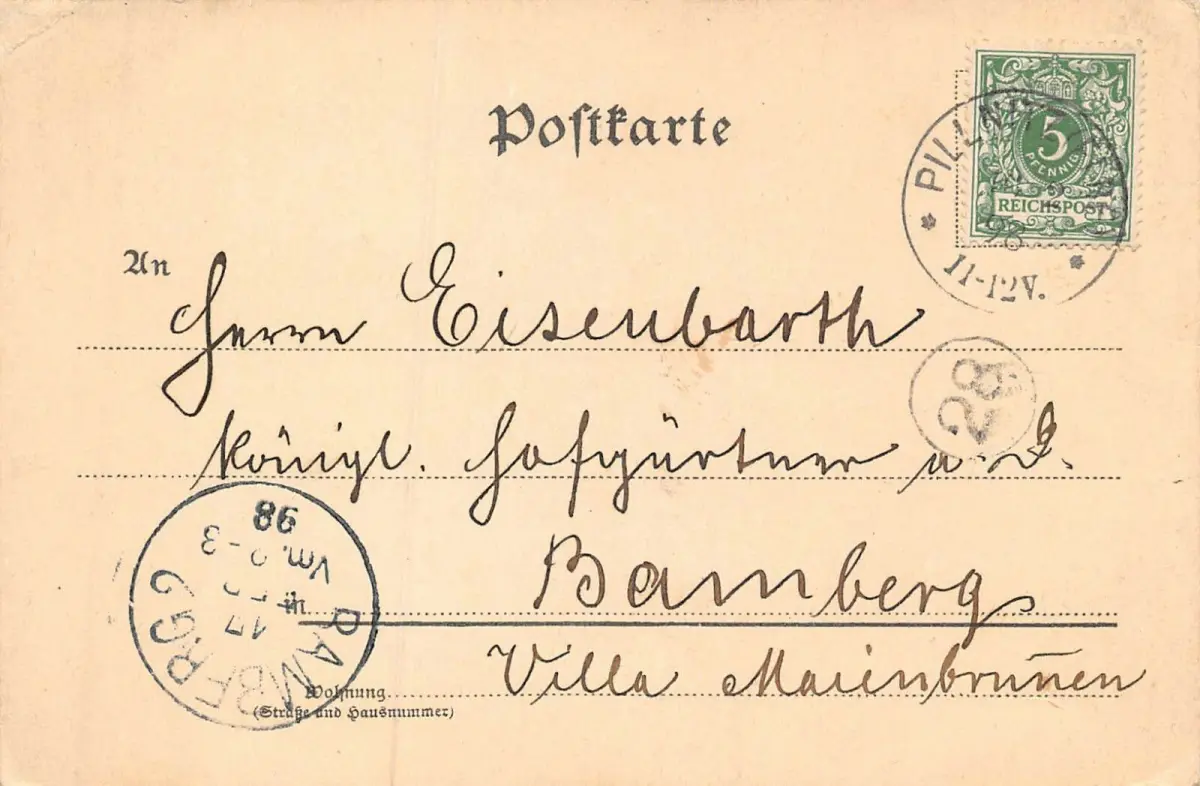 Postkarte
5
PFENNIG
REICHSPOST
98
11-12V.
An
Herrn Eisenbarth
28
königl. Hofgärtner a. D.
in Bamberg
Villa Marienbrunnen
Wohnung
(Straße und Hausnummer)
BAMBERG 2
17
Vm. 2-3
98